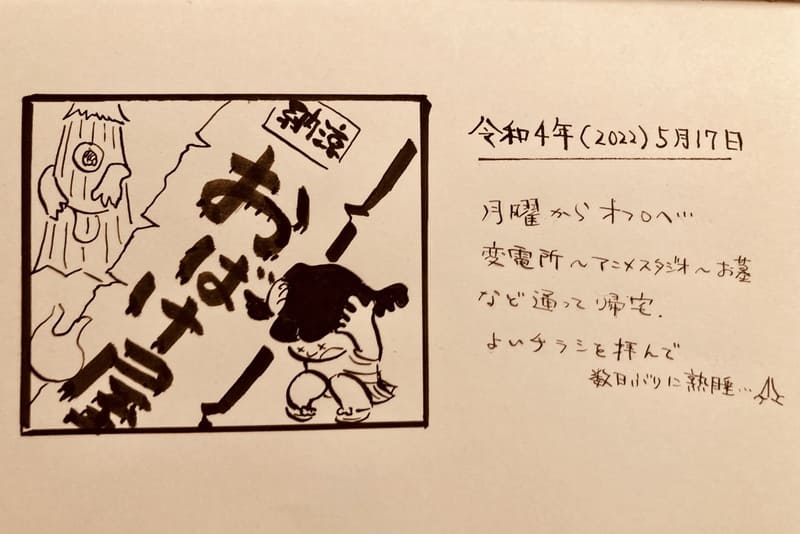 おばけ
令和4年(2022)5月17日
月曜からオフロへ…
変電所〜アニメスタジオ〜お墓
など通って帰宅.
よいチラシを拝んで
数日ぶりに熟睡…